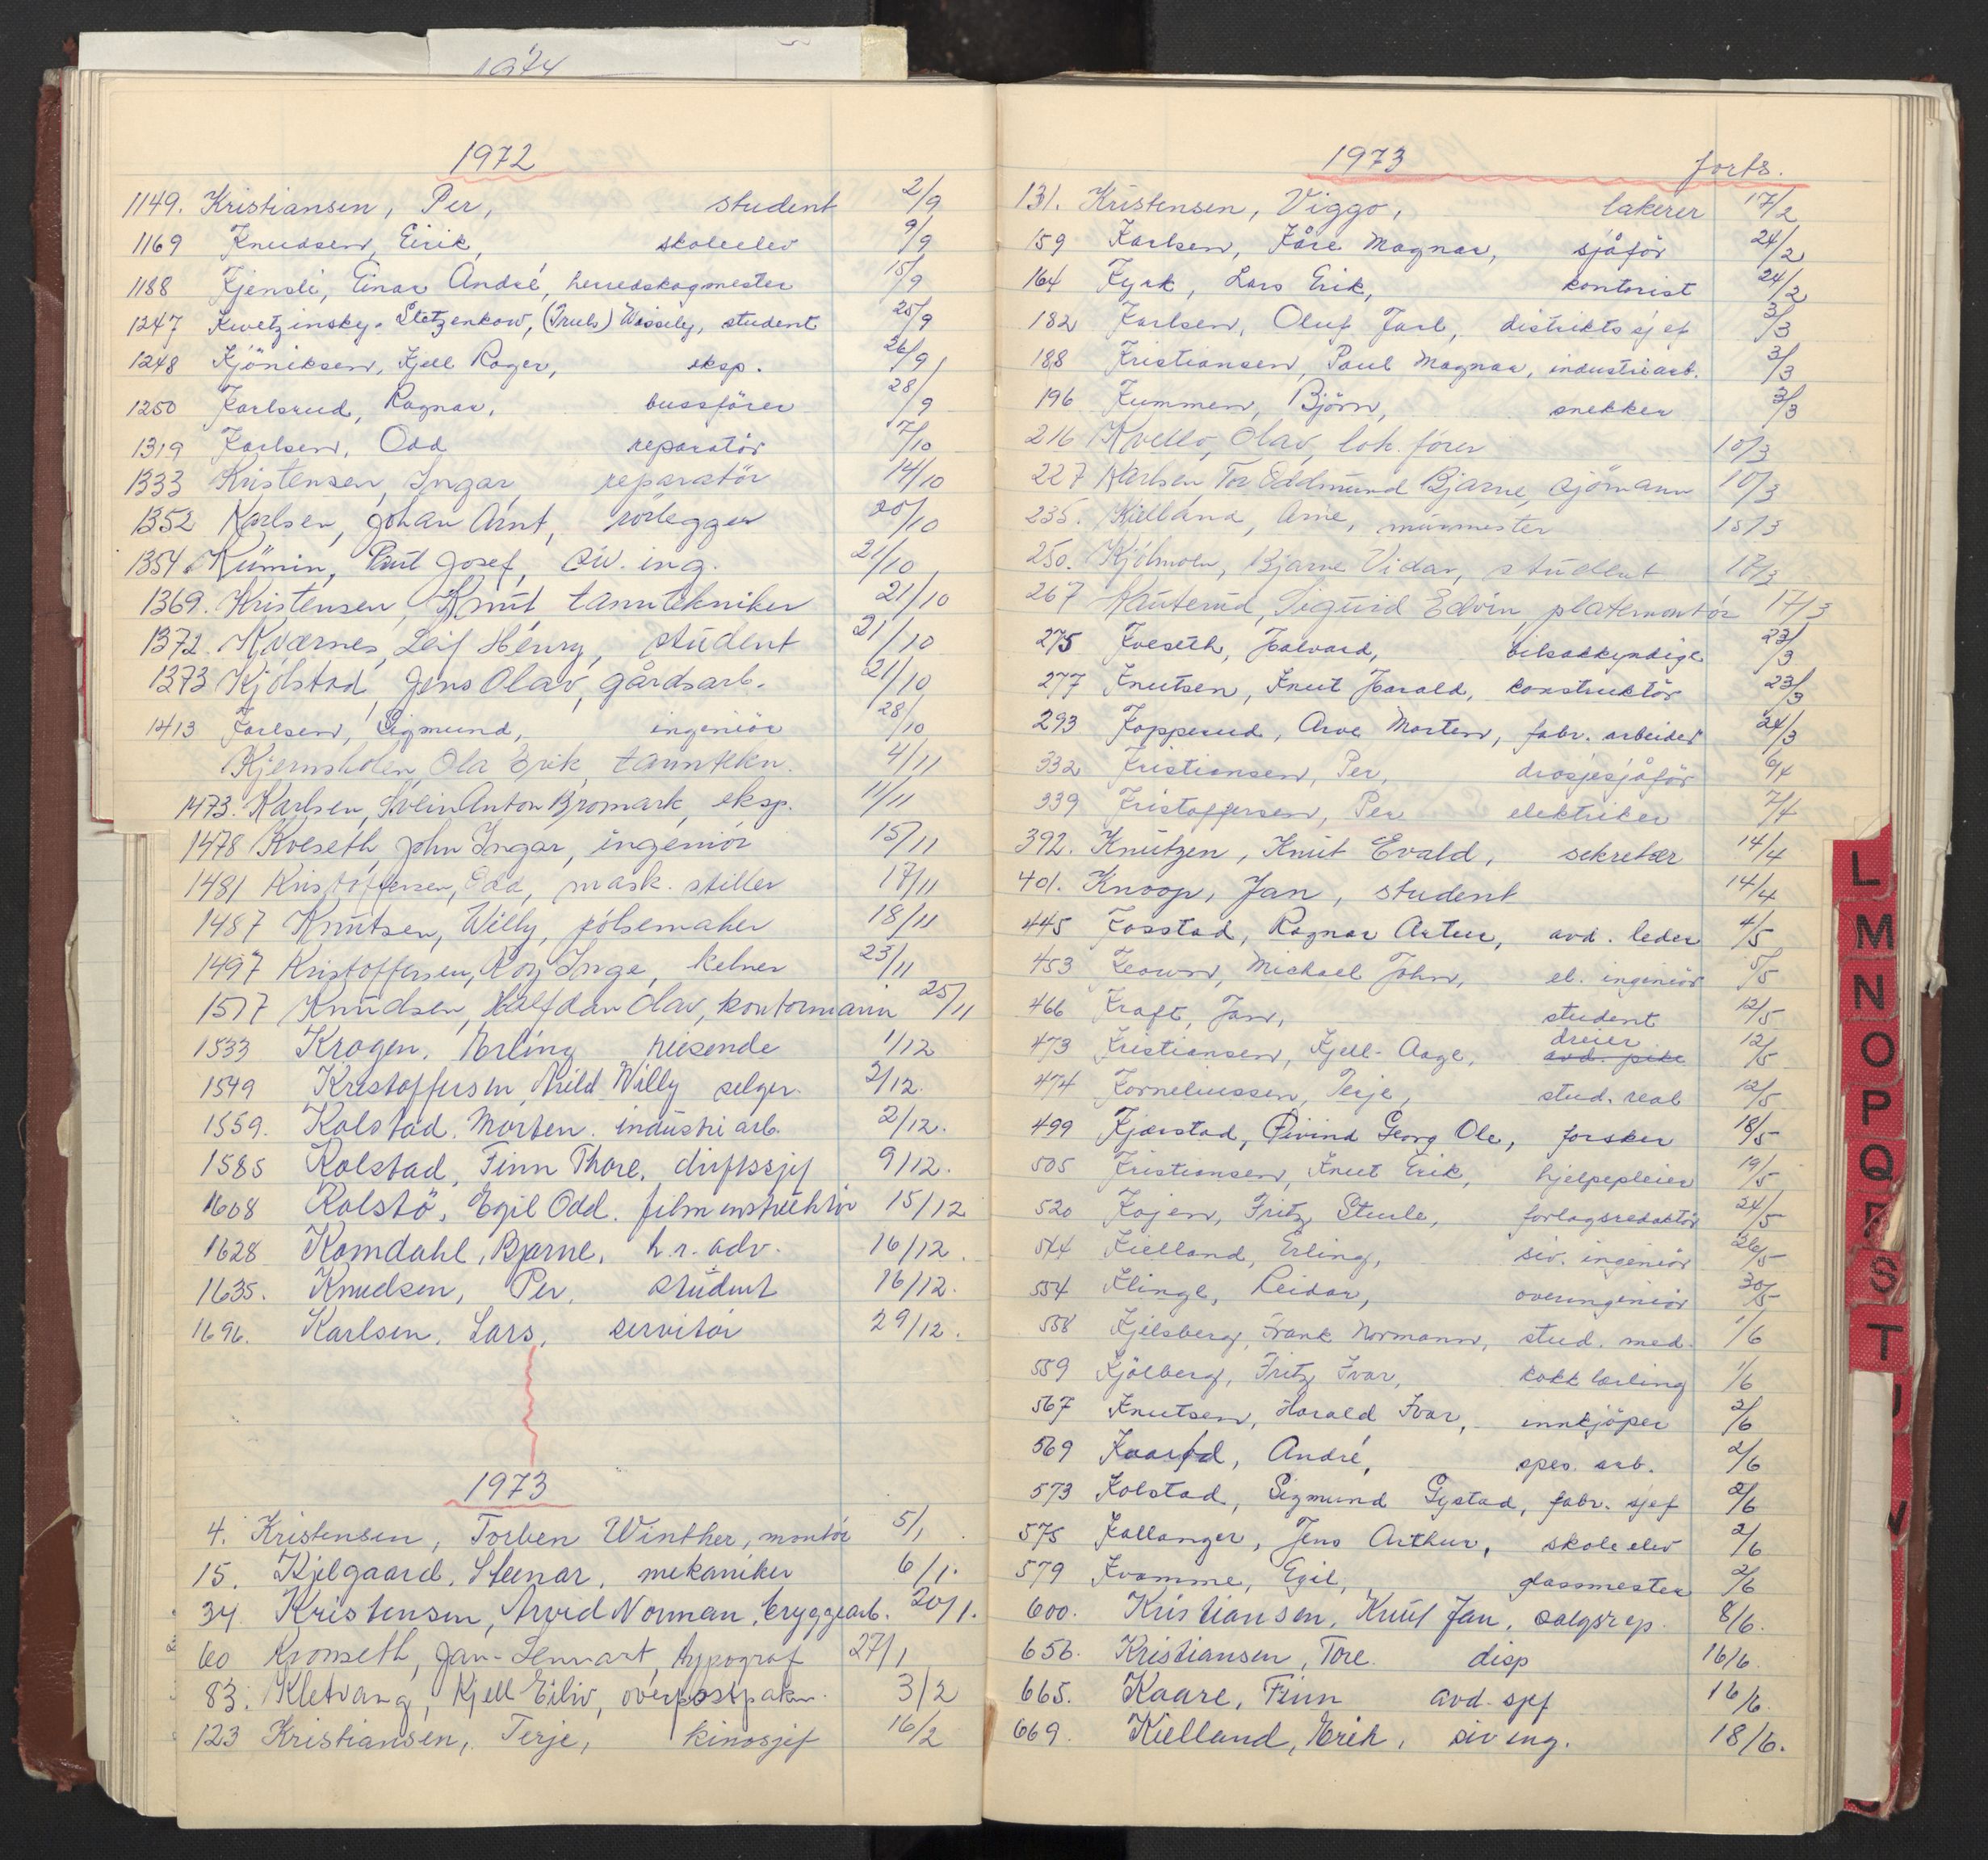 1974
1972
1149. Kristiansen, Per, student 2/9
1169 Knudsen, Eirik, skoleelev 9/9
1188 Kjensli, Einar André, herredskogmester 15/9
1247 Kwetzinsky-Stetzenkow, (Truls) Wassily, student 25/9
1248 Kjöniksen, Kjell Roger, eksp. 26/9
1250 Karlsrud, Ragnar, bussförer 28/9
1319 Karlsen, Odd reparatör 7/10
1333 Kristensen, Ingar, reparatör 14/10
1352 Karlsen, Johan Arnt, rörlegger 20/10
1354. Kümin, Paul Josef, siv. ing. 21/10
1369. Kristensen, Knut tanntekniker 21/10
1372. Kværnes, Leif Henry, student 21/10
1373 Kjölstad, Jens Olav, gårdsarb. 21/10
1413 Karlsen, Sigmund, ingeniör 28/10
Kjernsholen, Ola Erik, tanntekn. 4/11
1473. Karlsen, Anton Bromark, eksp. 11/11
1478 Kveseth, John Ingar, ingeniör 15/11
1481 Kristoffersen, Odd, mask. stiller 17/11
1487 Knutsen, Willy, pölsemaker 18/11
1497 Kristoffersen, Roy Inge, kelner 23/11
1517 Knudsen, Halfdan Olav, kontormann 25/11
1533 Krogen, Erling reisende 1/12
1549 Kristoffersen, Arild Willy selger. 2/12.
1559. Kolstad, Morten. industriarb. 2/12.
1585 Kolstad, Finn Thore, driftssjef 9/12.
1608 Kolstö, Egil Odd. filminstruktör 15/12
1628 Komdahl, Bjarne, h.r. adv. 16/12.
1635. Knudsen, Per, student 16/12.
1696. Karlsen, Lars, servitör 29/12.
1973
4. Kristensen, Torben Winther, montör 5/1
15. Kjelgaard, Steinar, mekaniker 6/1.
34. Kristensen, Arvid Norman, bryggearb. 20/1.
60 Kromseth, Jan-Lennart, typograf 27/1
83. Kletvang, Kjell Eiliv, overpostpakm. 3/2
123 Kristiansen, Terje, kinosjef 16/2
1973 forts.
131. Kristensen, Viggo, lakerer 17/2
159 Karlsen, Kåre Magnar, sjåför 24/2
164 Kyrk, Lars Erik, kontorist 24/2
182 Karlsen, Oluf Jarl, distriktssjef 3/3
188 Kristiansen, Paul Magnar, industriarb. 3/3
196 Kummen, Björn, snekker 3/3
216 Kvello, Olav, lok. förer 10/3
227 Karlsen, Tor Oddmund Bjarne, sjömann 10/3
235. Kielland, Arne, murmester 15/3
250. Kjölmoen, Bjarne Vidar, student 17/3
267 Kauterud, Sigurd Edvin, platemontör 17/3
275 Kveseth, Halvard, bilsakkyndig 23/3
277 Knutsen, Knut Harald, konstruktör 23/3
293 Kopperud, Arve Morten, fabr. arbeider 24/3
332 Kristiansen, Per, drosjesjåför 6/4
339 Kristoffersen, Per elektriker 7/4
392. Knutzen, Knut Evald, sekretær 14/4
401. Knoop, Jan, student 14/4
445 Kosstad, Ragnar Artur, avd. leder 4/5
453 Keown, Michael John, el. ingeniör 5/5
466 Kraft, Jan, student 12/5
473 Kristiansen, Kjell-Aage, dreier 12/5
474 Korneliussen, Terje, stud. real 12/5
499 Kjærstad, Øivind Georg Ole, forsker 18/5
505 Kristiansen, Knut Erik, hjelpepleier 19/5
520 Kojen, Fritz Sturle, forlagsredaktör 24/5
544 Kielland, Erling, siv. ingeniör 26/5
554 Klinge, Reidar, overingeniör 30/5
558 Kjelsberg, Frank Normann, stud. med. 1/6
559 Kjölberg, Fritz Ivar, kokklærling 1/6
567 Knutsen, Harald Ivar, innkjöper 2/6
569 André, spes. arb. 2/6
573 Kolstad, Sigmund Gystad, fabr. sjef 2/6
575 Kallanger, Jens Arthur, skoleelev 2/6
579 Kvamme, Egil, glassmester 2/6
600. Kristiansen, Knut Jan, salgsrep. 8/6.
656. Kristiansen, Tore. disp 16/6
665. Kaare, Finn avd. sjef 16/6.
669. Kielland, Erik, siv ing. 18/6.
L
M
N
O
P
Q
R
S
T